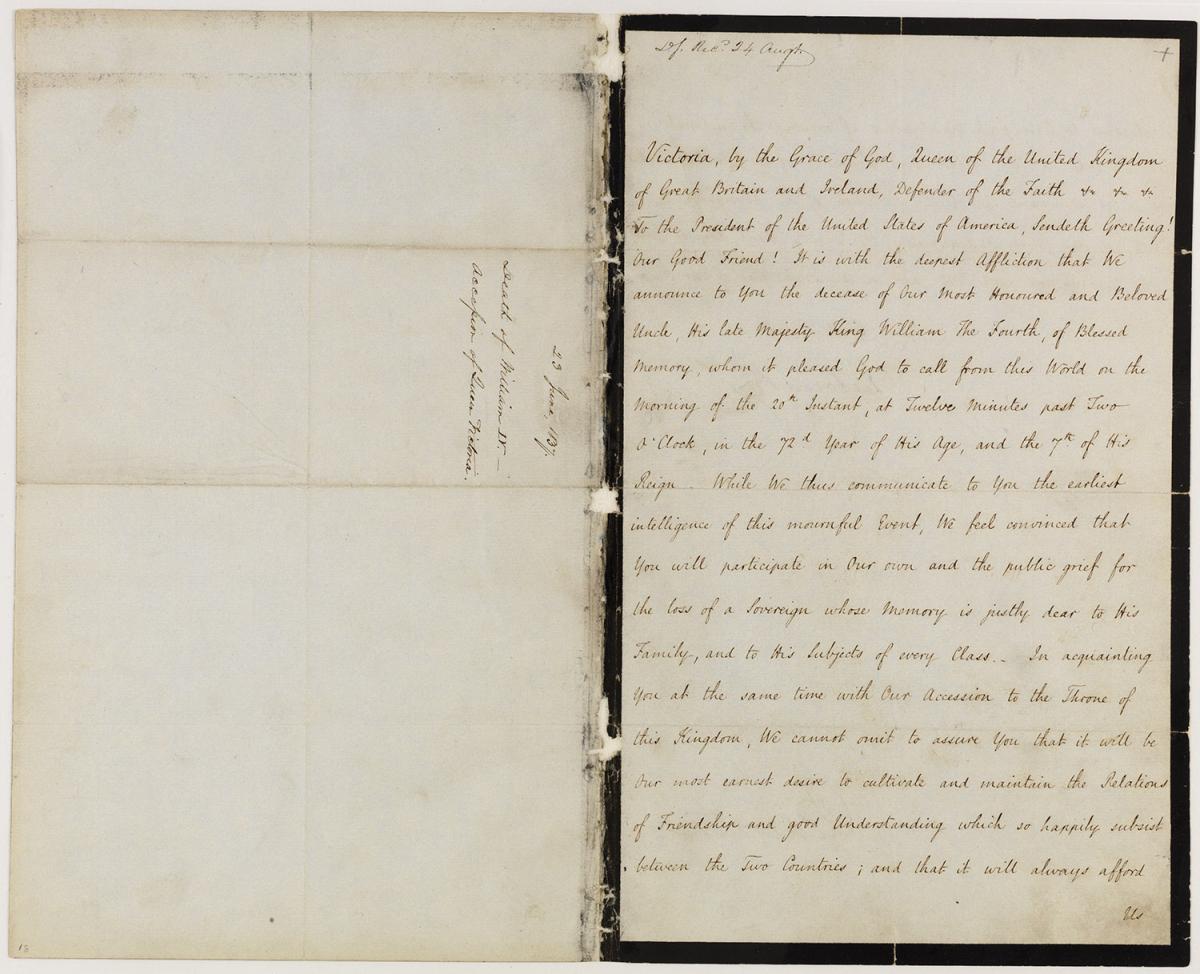 23 June, 1837.
Death of William IV. —
Accession of Queen Victoria.
18
Recd. 24 Augt.
+
Victoria, by the Grace of God, Queen of the United Kingdom
of Great Britain and Ireland, Defender of the Faith &c &c &c
To the President of the United States of America, Sendeth Greeting!
Our Good Friend! It is with the deepest Affliction that We
announce to You the decease of Our Most Honoured and Beloved
Uncle, His late Majesty King William The Fourth, of Blessed
Memory, whom it pleased God to call from this World on the
Morning of the 20th Instant, at Twelve Minutes past Two
O'Clock, in the 72d Year of His Age, and the 7th of His
Reign. While We thus communicate to You the earliest
intelligence of this mournful Event, We feel convinced that
You will participate in Our own and the public grief for
the loss of a Sovereign whose Memory is justly dear to His
Family, and to His Subjects of every Class.. In acquainting
You at the same time with Our Accession to the Throne of
this Kingdom, We cannot omit to assure You that it will be
Our most earnest desire to cultivate and maintain the Relations
of Friendship and good Understanding which so happily subsist
between the Two Countries; and that it will always afford
Us